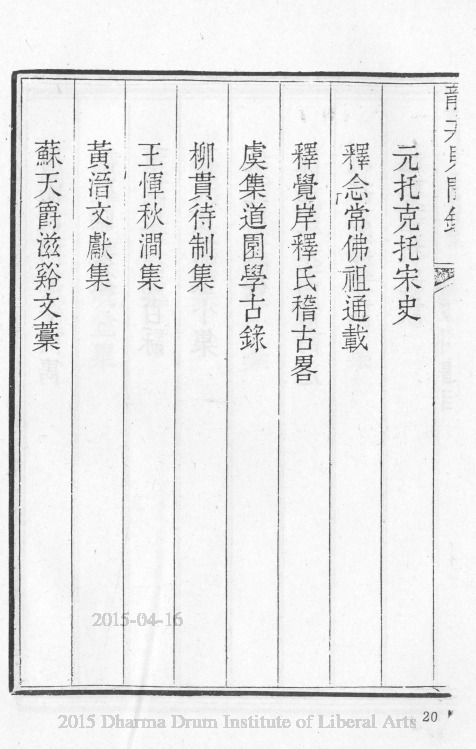 元托克托宋史
釋念常佛祖通載
釋覺岸釋氏稽古畧
虞集道園學古錄
柳貫待制集
王惲秋澗集
黃溍文獻集
蘇天爵滋谿文藁
2015-04-16
20
2015 Dharma Drum Institute of Liberal Arts